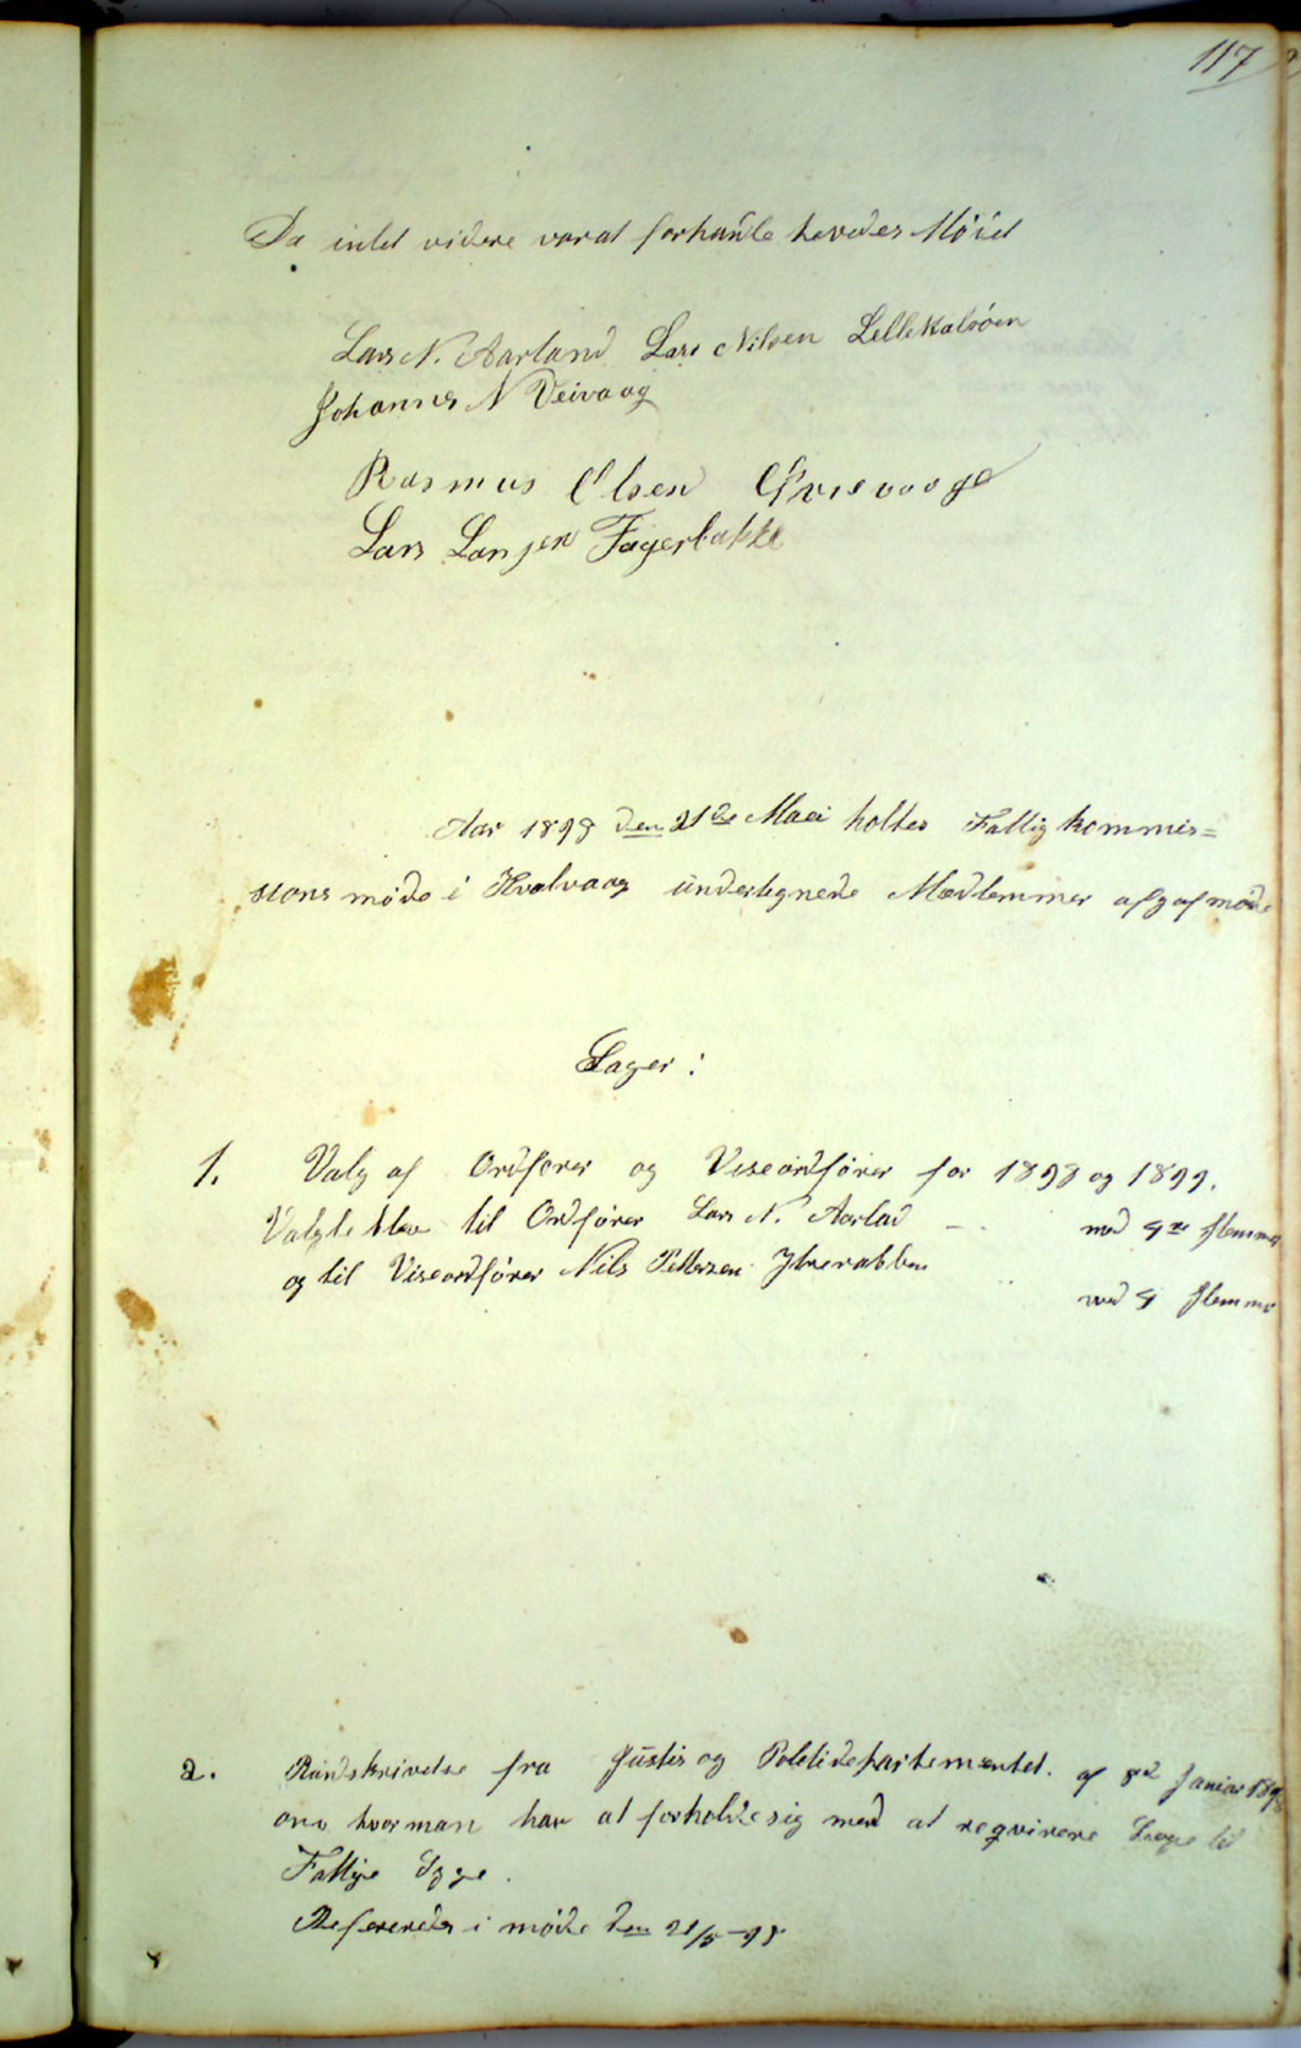 117
Da intet videre var at forhanle hevedes Möiet
Lars N. Aarland Lars Nilsen Lellekalsöen
Johannes N Veivaag
Rasmus Olsen
Lars Larsen Fagerbakke
Aar 1898 den 21de Maei holtes Fattigkommis=
sions möde i Hvalvaag undertegnede Medlemmer afgaf möde
Sager:
1. Valg af Ordförer og Viseordförer for 1898 og 1899.
Valgte blev til Ordförer Lars N. Aarlad - med 4re stemmer
og til Viseordförer Nils Pettersen Ytrerabben
med 4 stemmer
2. Rundskrivelse fra Justis og Politidepartementet. af 8de Januar 1898
om hvor man har at forholde sig med at reqvirere Læge til
Fattige Syge.
Refereredes i möde den 21/5-98